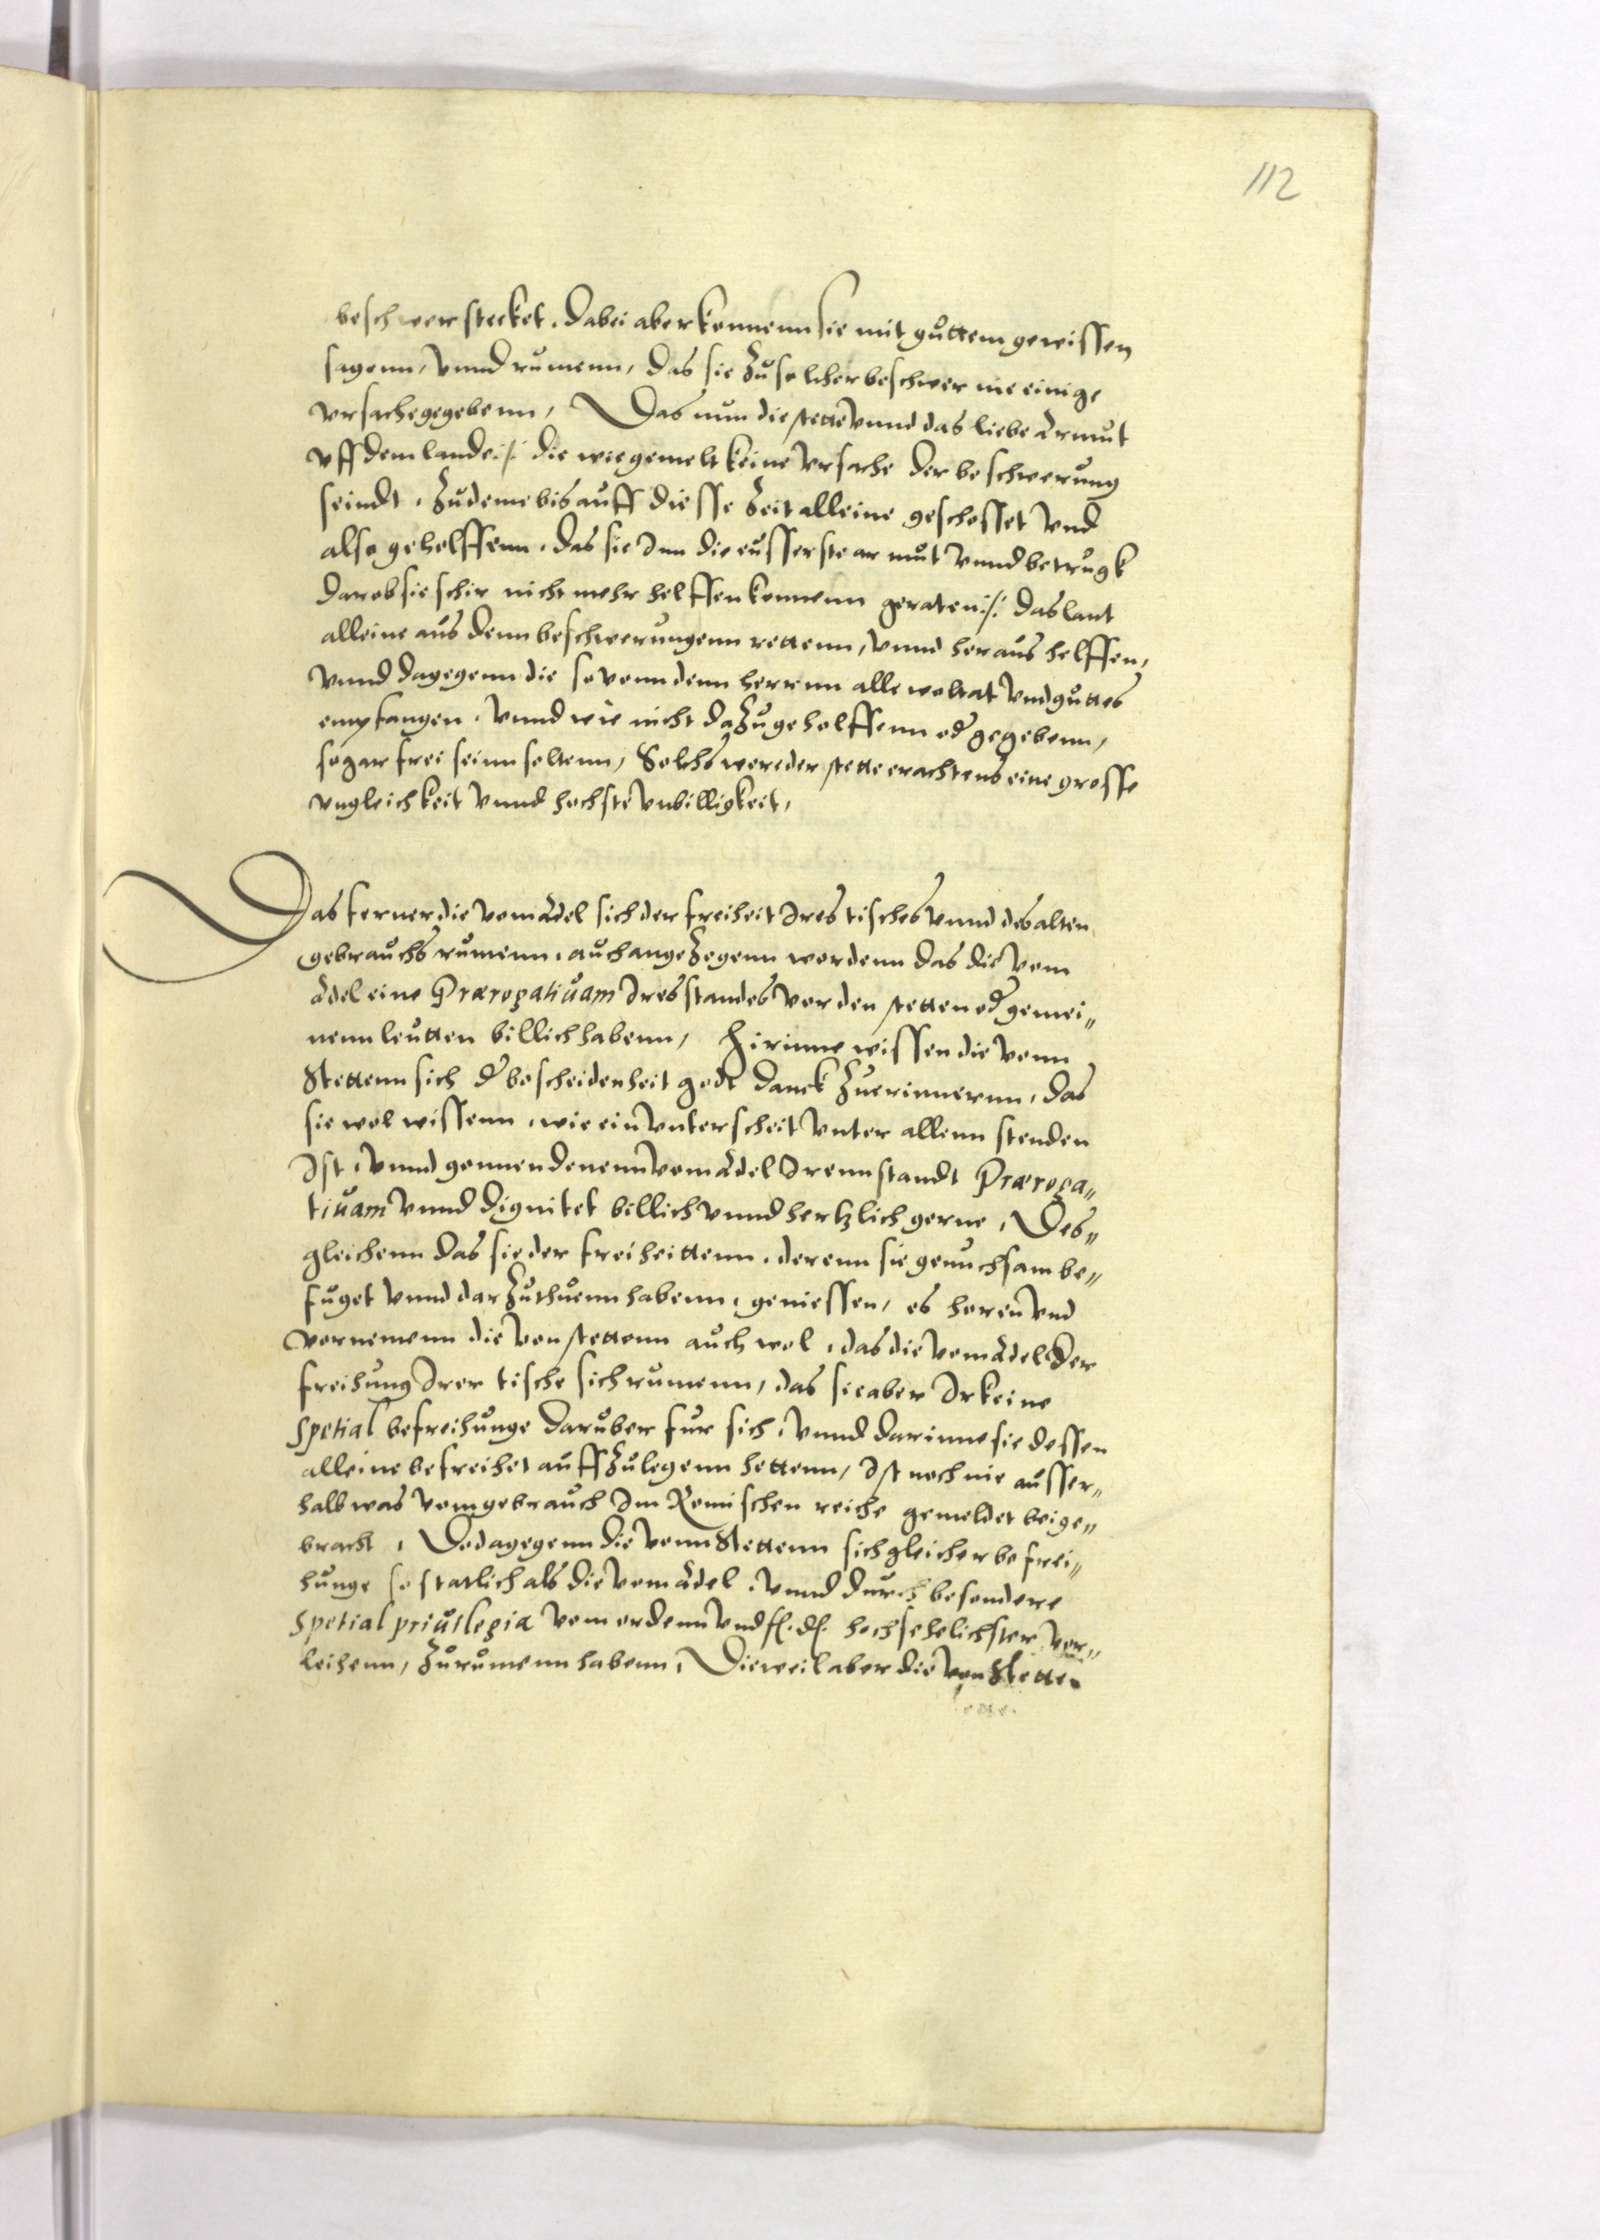 112
beschwer stecket. Dabei aber konnenn sie mit guttem gewissen
sagenn, vnnd rumenn, das sie zu solcher beschwer nie einige
vrsache gegebenn, Das nun die stette vnnd das liebe Armut
vff dem lande :/: die wie gemelt keine vrsache der beschwerung
seindt. Zudeme bis auff diesse zeit alleine geschosset vnd
also geholffenn, das sie Inn die eusserste armut vnnd betrugk
darob sie schir nicht mehr helffen konnenn geraten :/: das lant
alleine aus denn beschwerungenn rettenn, vnnd heraus helffen,
vnnd dagegenn die so vonn denn herrnn alle woltat vnd guttes
empfangen, vnnd wie nicht dazu geholffenn oder gegebenn,
so gar frei seinn soltenn, Solchs were der stette erachtens eine grosse
vngleichkeit vnnd hochste vnbilligkeit,
Das ferner die vom Adel sich der freiheit Ires tisches vnnd des alten
gebrauchs rumenn, auch angezogenn wordenn das die vom
Adel eine Præropatiuam Ires standes vor den stetten oder gemei„
nenn leutten billich habenn, Hirinne wissen die vonn
Stettenn sich der bescheidenheit godt danck zuerinnernn, das
sie wol wissenn, wie ein vnterscheit vnter allenn stenden
Ist, vnnd gonnen denenn vom Adel Irenn standt Præroga„
tiuam vnnd dignitet billich vnnd hertzlich gerne, Des„
gleichenn das sie der freiheittenn, derenn sie genuchsam be„
fuget vnnd dar zuthuenn habenn, geniessen, es horen vnd
vornemenn die von stettenn auch wol, das die vom Adel der
freihung Irer tische sich rumenn, das sie aber Ir keine
spetial befreihunge daruber fur sich, vnnd darinne sie dessen
alleine befreihet auffzulegenn hettenn, Ist noch nie ausser„
halb was vom gebrauch Im Romischen reiche gemeldet beige„
bracht, Do dagegenn die vonn Stettenn sich gleicher befrei„
hunge so statlich als die vom Adel, vnnd durch besondere
spetial priuilegia vom ordenn vnd fl. dl. hochsehelichster ver„
leihenn, zurumenn habenn, Dieweil aber die von Stetten